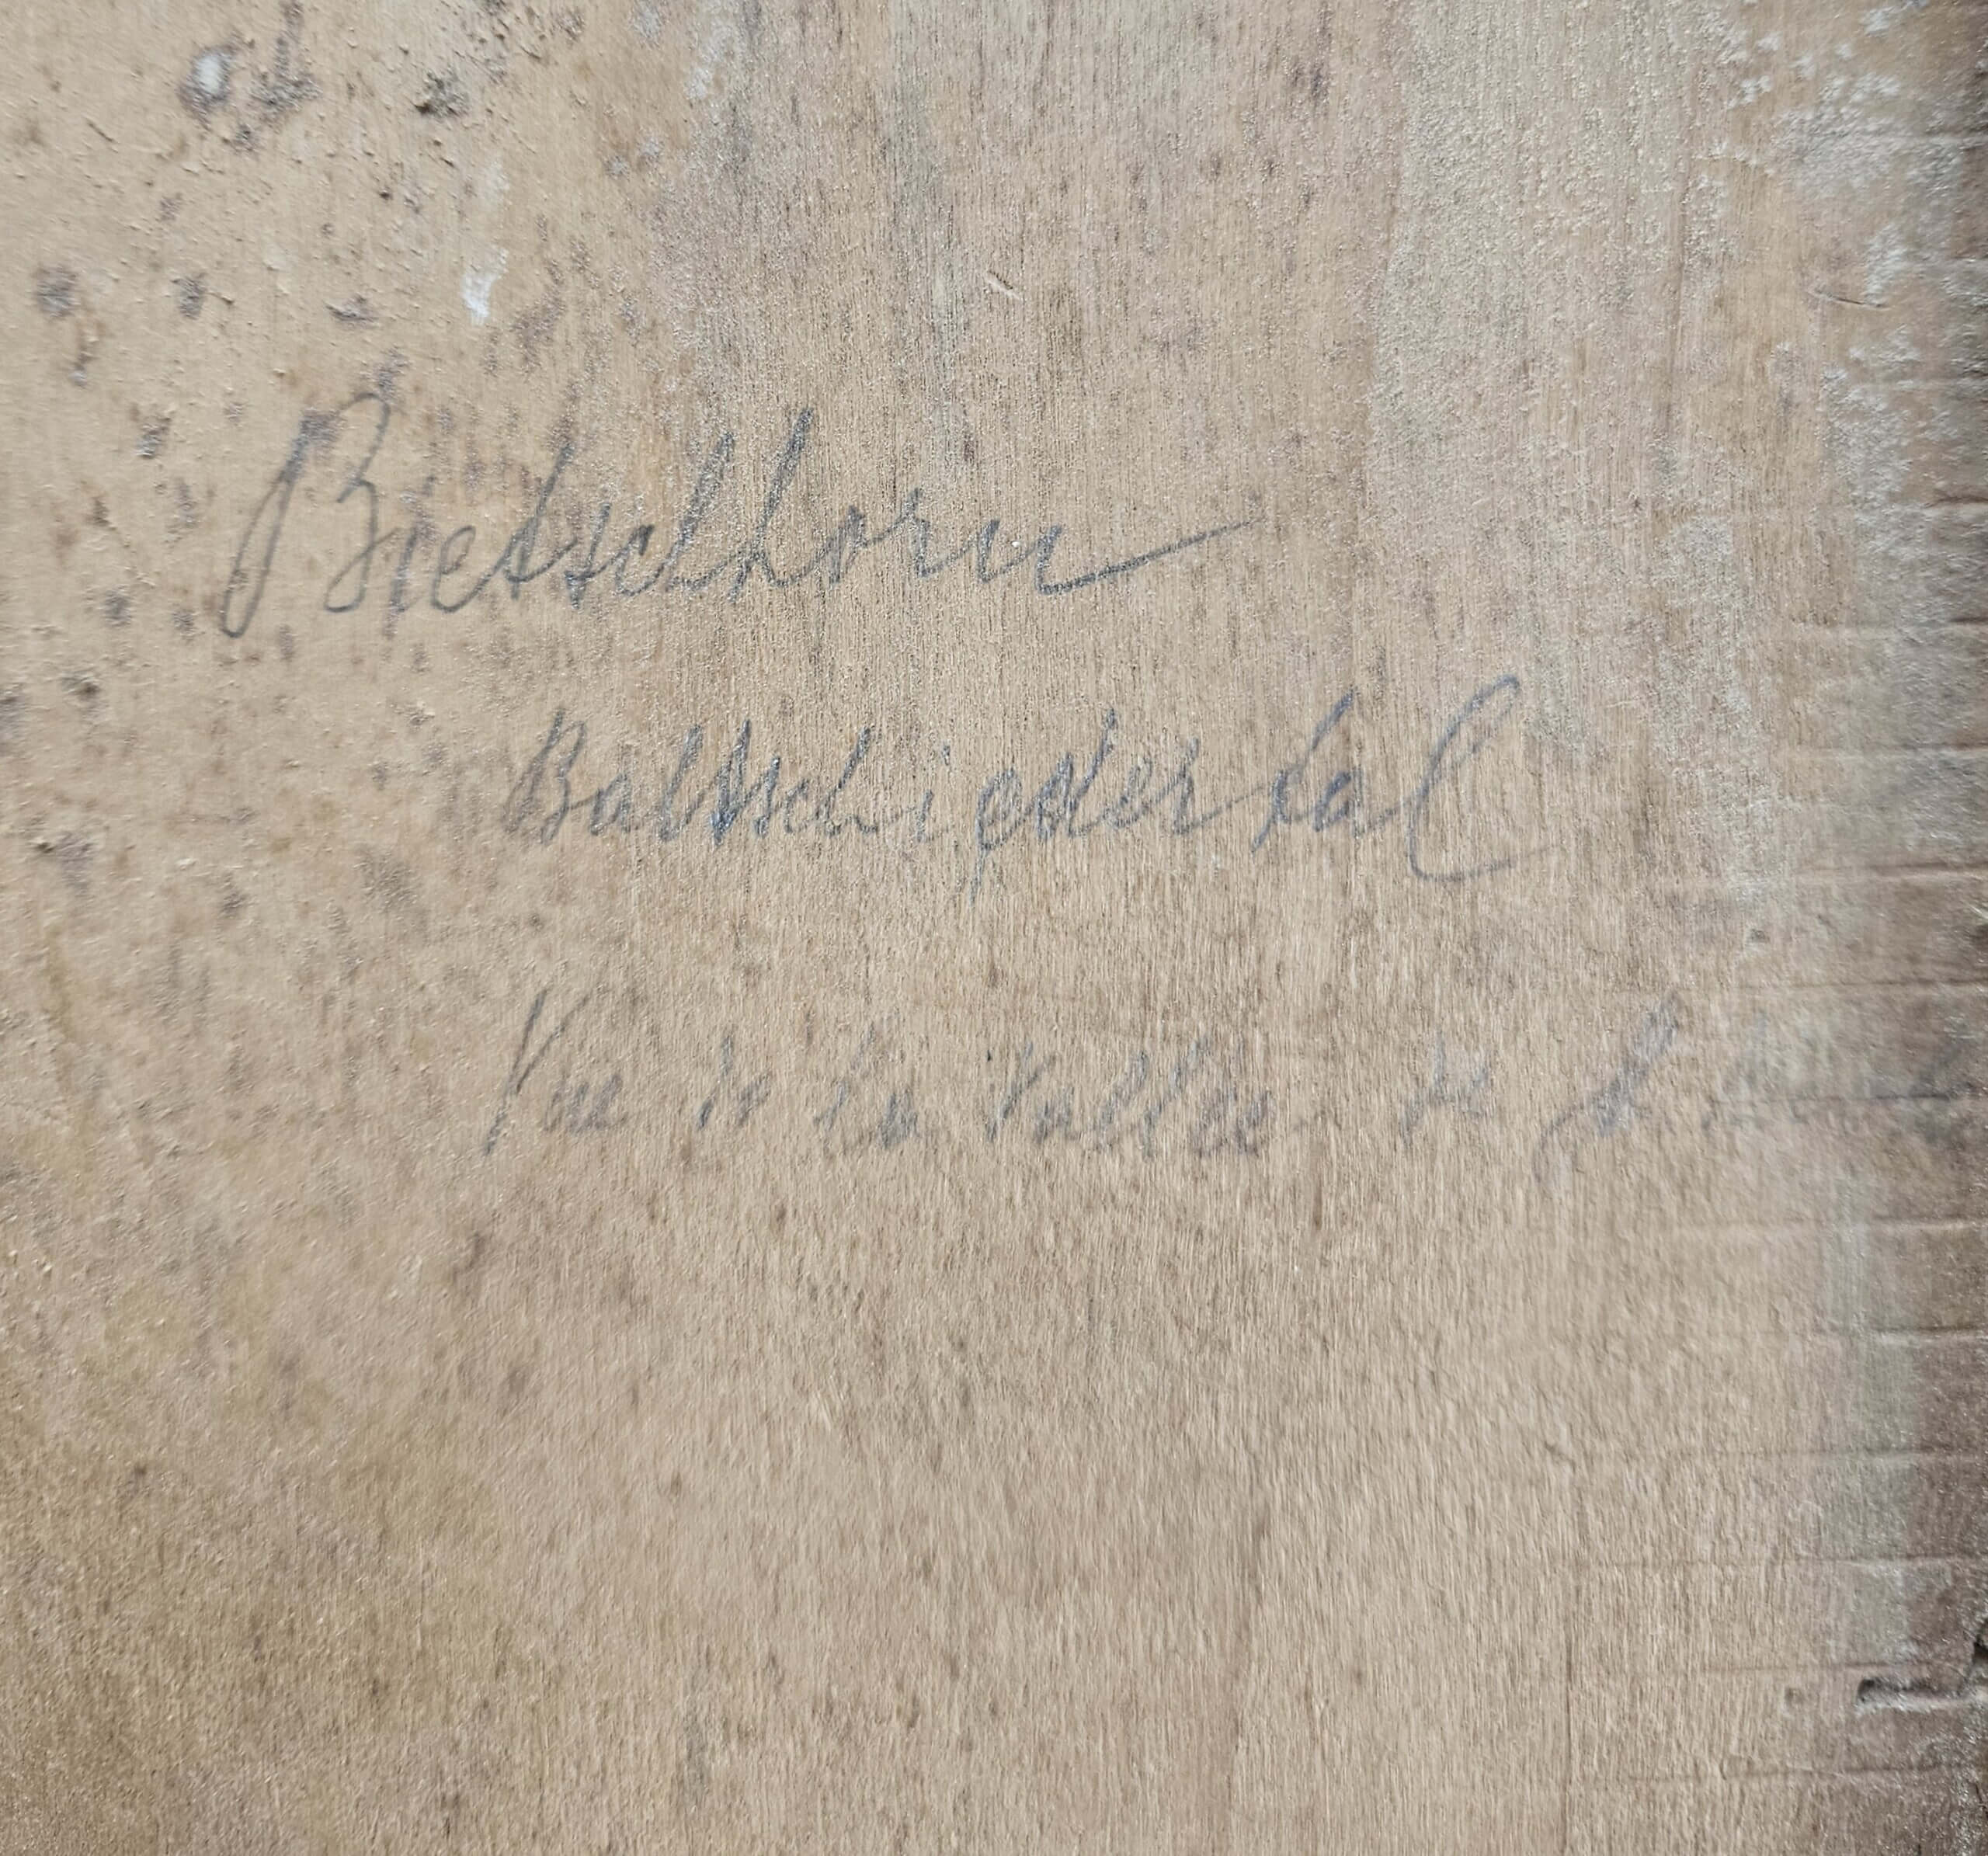 Bietschhorn
Baltschiedertal
Vue de la Vallée de